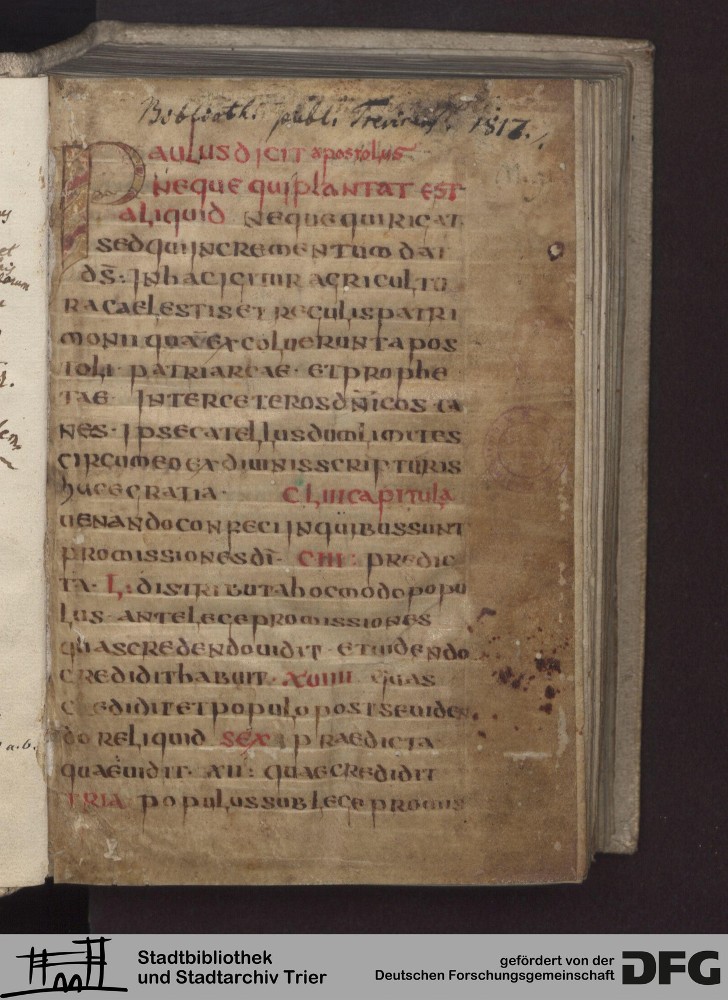 publ. 1817.
PAULUS DICIT apostolus
NEQUE qui plantat EST
aliquid NEQUE QUI RIGAT
SED QUI INCREMENTUM DAT
DS̅: IN HAC IGITUR AGRICULTU
RA CAELESTIS ET REGULIS PATRI
MONII QUA̅ EXCOLUERUNT APOS
TOLI · PATRIARCAE · ET PROPHE
TAE · INTER CETEROS DN̅ICOS CA
NES · IPSE CATELLUS DUM LIMITES
CIRCUMEO EX DIUINIS SCRIPTURIS
HUCE GRATIA · CLIII CAPITULA
UENANDO CONREGI IN QUIBUS SUNT
PROMISSIONES DI̅ · CIII: PREDIC
TA · L: DISTRIBUTA HOC MODO POPU
LUS · ANTE LEGE PROMISSIONES
QUAS CREDENDO UIDIT · ET UIDENDO
CREDIDIT HABUIT · XUIIII QUAS
CREDIDIT ET POPULO POST SE UIDEN
DO RELIQUID SEX: PRAEDICTA
QUAE UIDIT · XII: QUAE CREDIDIT
TRIA POPULUS SUB LEGE PROMIS
a.b.
Stadtbibliothek
und Stadtarchiv Trier
gefördert von der
Deutschen Forschungsgemeinschaft
DFG